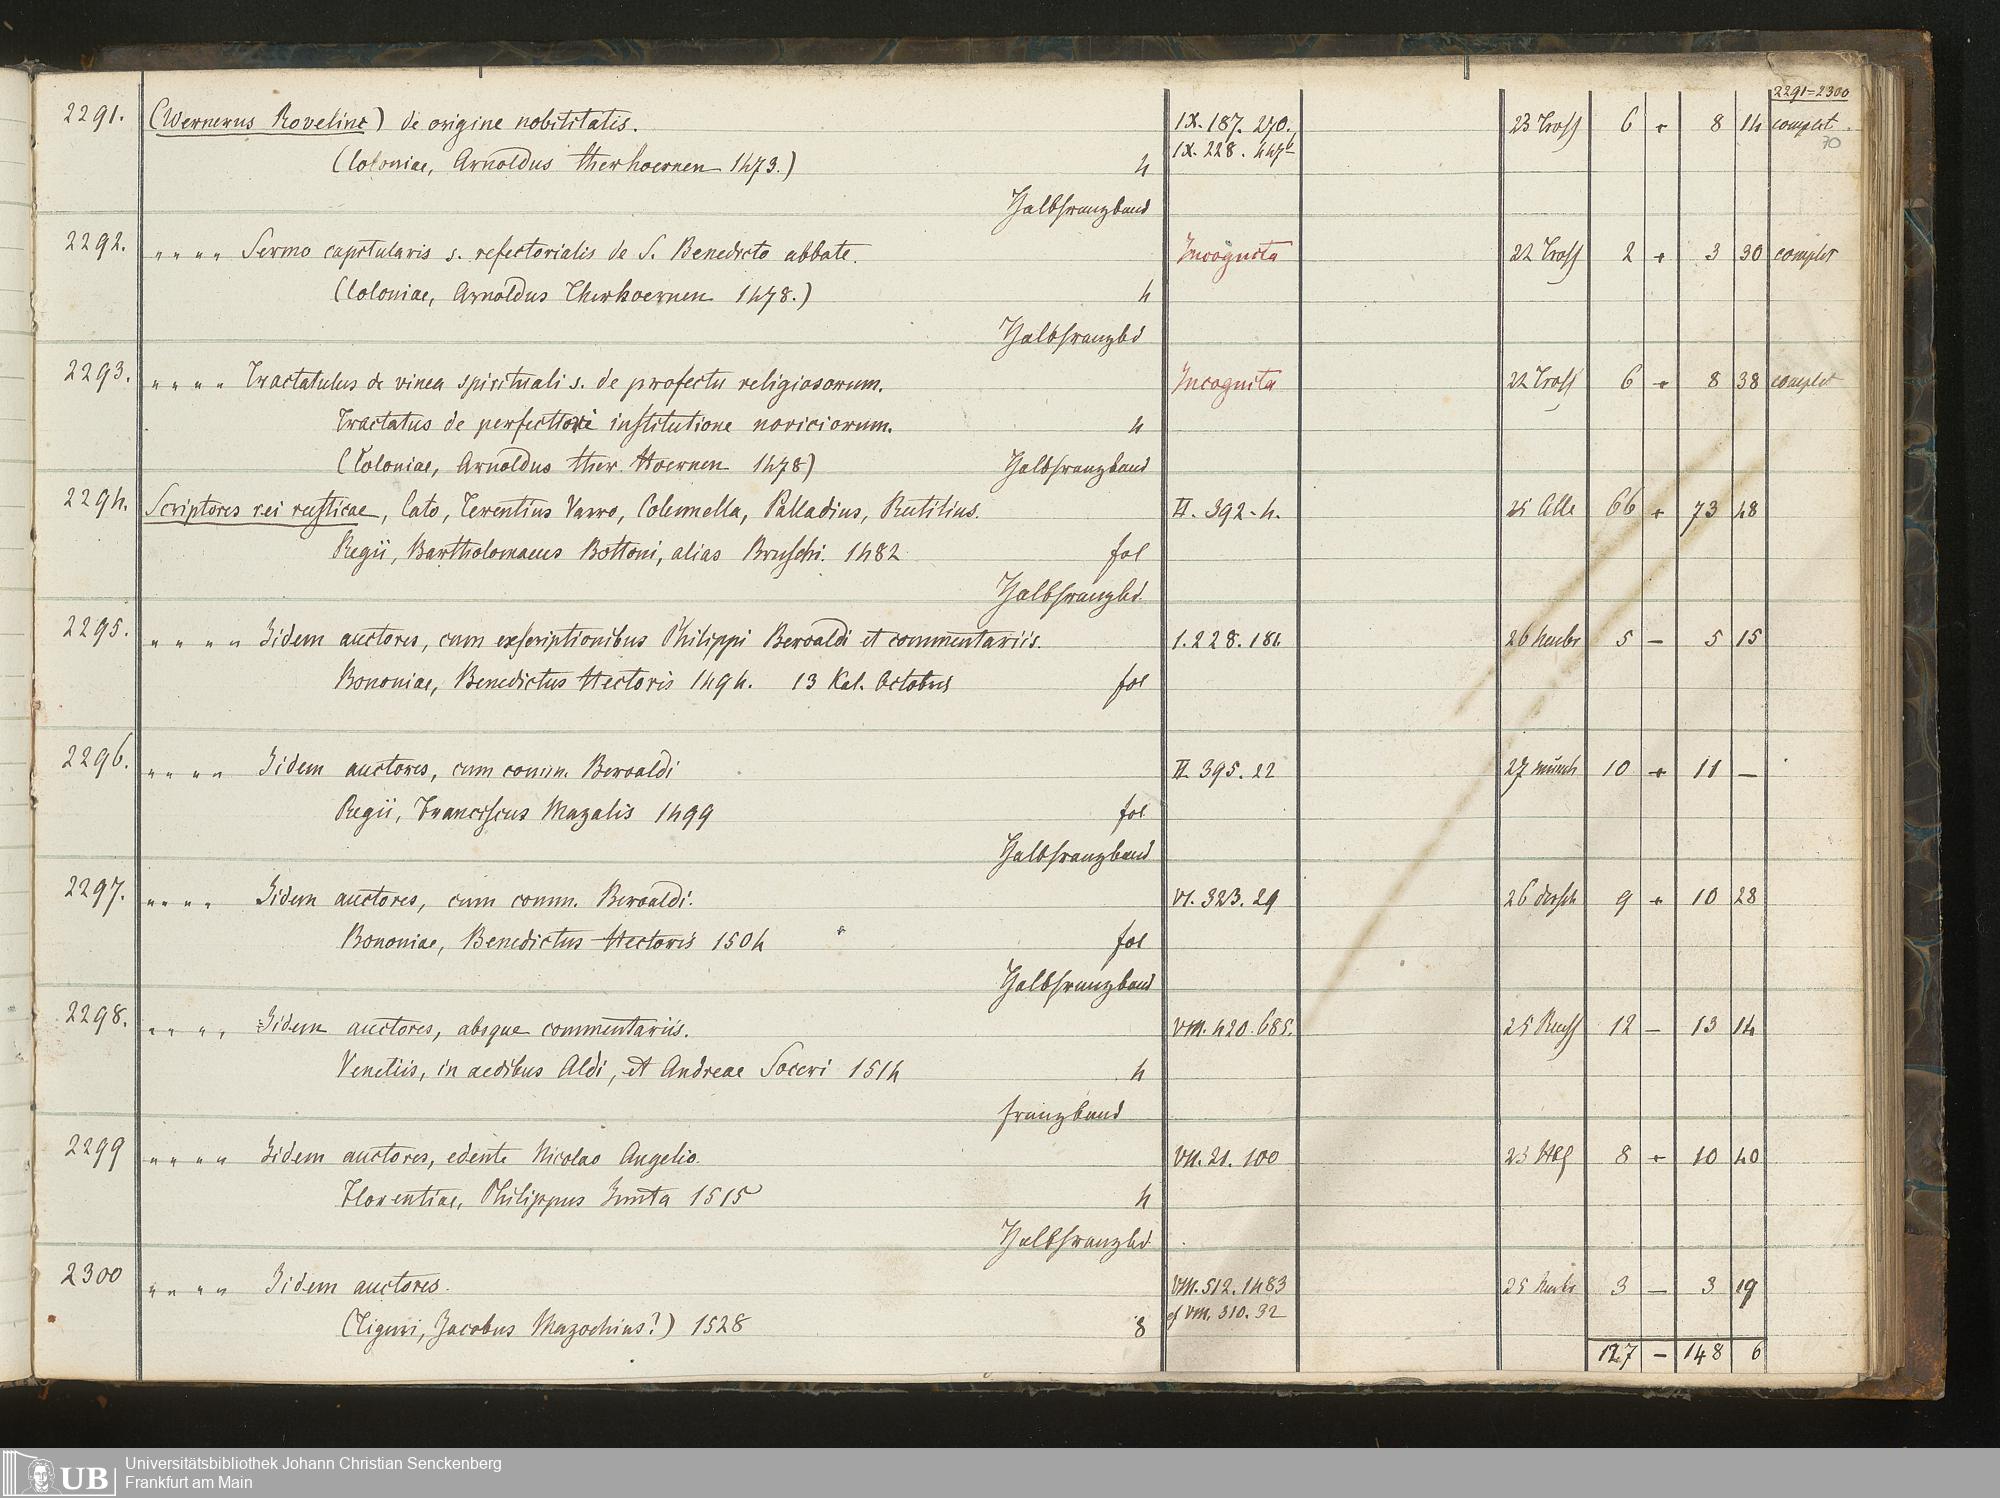 2291=2300
2291. (Wernerus Rovelinc) de origine nobilitatis. IX. 187. 270. 23 Tross 6 + 8 14 complet
(Coloniae, Arnoldus therhoernen 1473.) 4 IX. 228. 447b 70
Halbfranzband
2292. " " " " Sermo capitularis s. refectorialis de S. Benedicto abbate. Incognita 22 Tross 2 + 3 30 complet
(Coloniae, Arnoldus Therhoernen 1478.) 4
Halbfranzbd
2293. " " " " Tractatulus de vinea spirituali s. de profectu religiosorum. Incognita 22 Tross 6 + 8 38 complet
Tractatus de perfectiori institutione noviciorum. 4
(Coloniae, Arnoldus ther Hoernen 1478) Halbfranzband
2294. Scriptores rei rusticae, Cato, Terentius Varro, Columella, Palladius, Rutilius. II. 392-4. 25 Alle 66 + 73 48
Regii, Bartholomaeus Bottoni, alias Bruschi. 1482 fol
Halbfranzbd.
2295. " " " " Iidem auctores, cum exscriptionibus Philippi Beroaldi et commentariis. 1. 228. 186 26 5 – 5 15
Bononiae, Benedictus Hectoris 1494. 13 Kal. Octobres fol
2296. " " " " Iidem auctores, cum comm. Beroaldi II. 395. 22 27 münch 10 + 11 –
Regii, Franciscus Mazalis 1499 fol
Halbfranzband
2297. " " " " Iidem auctores, cum comm. Beroaldi. VI. 323. 29 26 9 + 10 28
Bononiae, Benedictus Hectoris 1504 fol
Halbfranzband
2298. " " " " Iidem auctores, absque commentariis. VIII. 420. 685. 25 12 – 13 14
Venetiis, in aedibus Aldi, et Andreae Soceri 1514 4
franzband
2299 " " " " Iidem auctores, edente Nicolao Angelio. VII. 21. 100 23 8 + 10 40
Florentiae, Philippus Iunta 1515 4
Halbfranzbd.
2300 " " " " Iidem auctores. VIII. 512. 1483 25 3 – 3 19
(Tiguri, Jacobus Mazochius?) 1528 8 cf VIII. 310. 32
127 – 148 6
UB Universitätsbibliothek Johann Christian Senckenberg
Frankfurt am Main